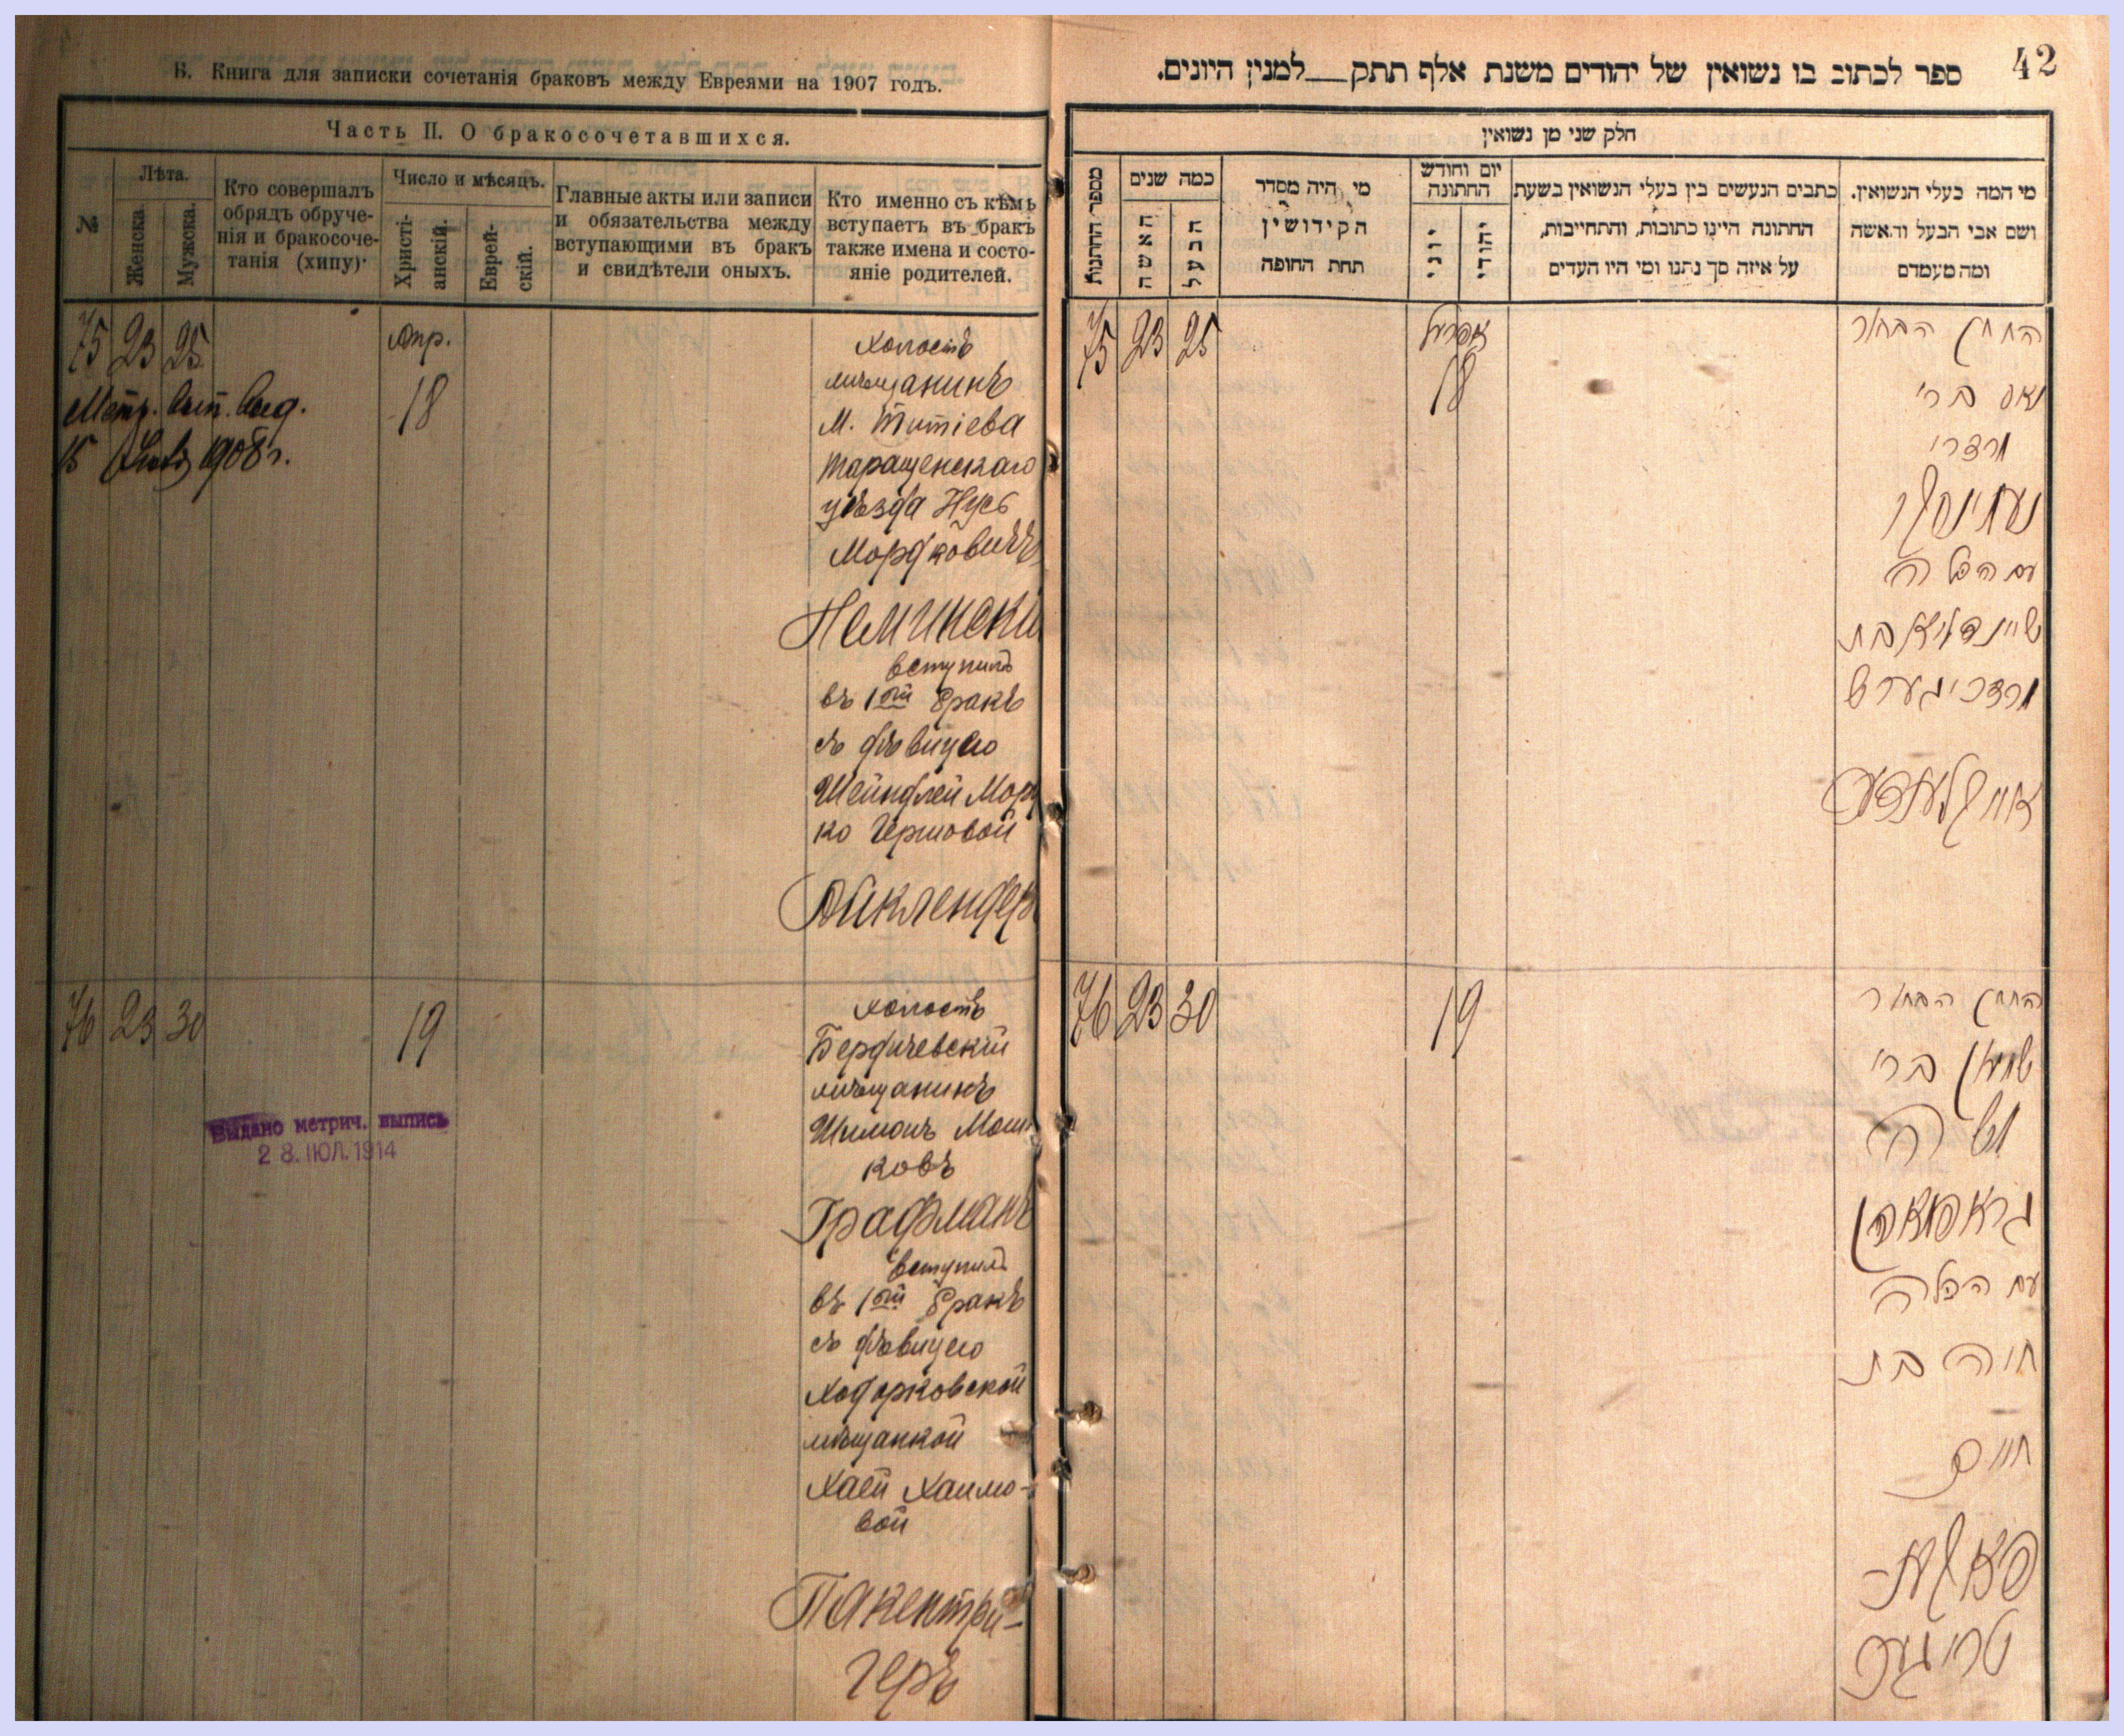 Б. Книга для записки сочетанія браковъ между Евреями на 1907 годъ.
Часть II. О бракосочетавшихся.
№
Лѣта.
Женска.
Мужска.
Кто совершалъ
обрядъ обруче-
нія и бракосоче-
танія (хипу)·
Число и мѣсяцъ.
Христі-
анскій.
Еврей-
скій.
Главные акты или записи
и обязательства между
вступающими въ бракъ
и свидѣтели оныхъ.
Кто именно съ кѣмъ
вступаетъ въ бракъ
также имена и состо-
яніе родителей.
75 23 25
Апр.
18
Метр. вып. выд.
15 1908 г.
холостъ
мѣщанинъ
М. Тетіева
Таращенскаго
уѣзда Нусь
Мордковичъ
Немински
вступилъ
въ 1ой бракъ
съ дѣвицею
Шейндлей Морд
ко Гершовой
Айклендеръ
76 23 30
19
Выдано метрич. выпись
28. ІЮЛ. 1914
холостъ
Бердичевскій
мѣщанинъ
Шимонъ Мош
ковъ
Графманъ
вступилъ
въ 1ой бракъ
съ дѣвицею
Ходорковской
мѣщанкой
Хаей Хаимо-
вой
Пакентрей-
геръ
42
ספר לכתוב בו נשואין של יהודים משנת אלף תתק__למנין היונים.
חלק שני מן נשואין
מספר החתנות
כמה שנים
האשה
הבעל
מי היה מסדר
הקידושין
תחת החופה
יום וחודש
החתונה
יוני
יהודי
כתבים הנעשים בין בעלי הנשואין בשעת
החתונה היינו כתובות, והתחייבות,
על איזה סך נתנו ומי היו העדים
מי המה בעלי הנשואין.
ושם אבי הבעל והאשה
ומה מעמדם
75 23 25
אפריל
18
החתן הבחור
נוס ברי
מרדכי
נעמינסקי
עם הכלה
שיינדליא בת
מרדכי גערש
אייקלענדער
76 23 30
19
החתן הבחור
שמעון ברי
משה
גראפמאן
עם הכלה
חיה בת
חיים
פאקענ-
טרייגער